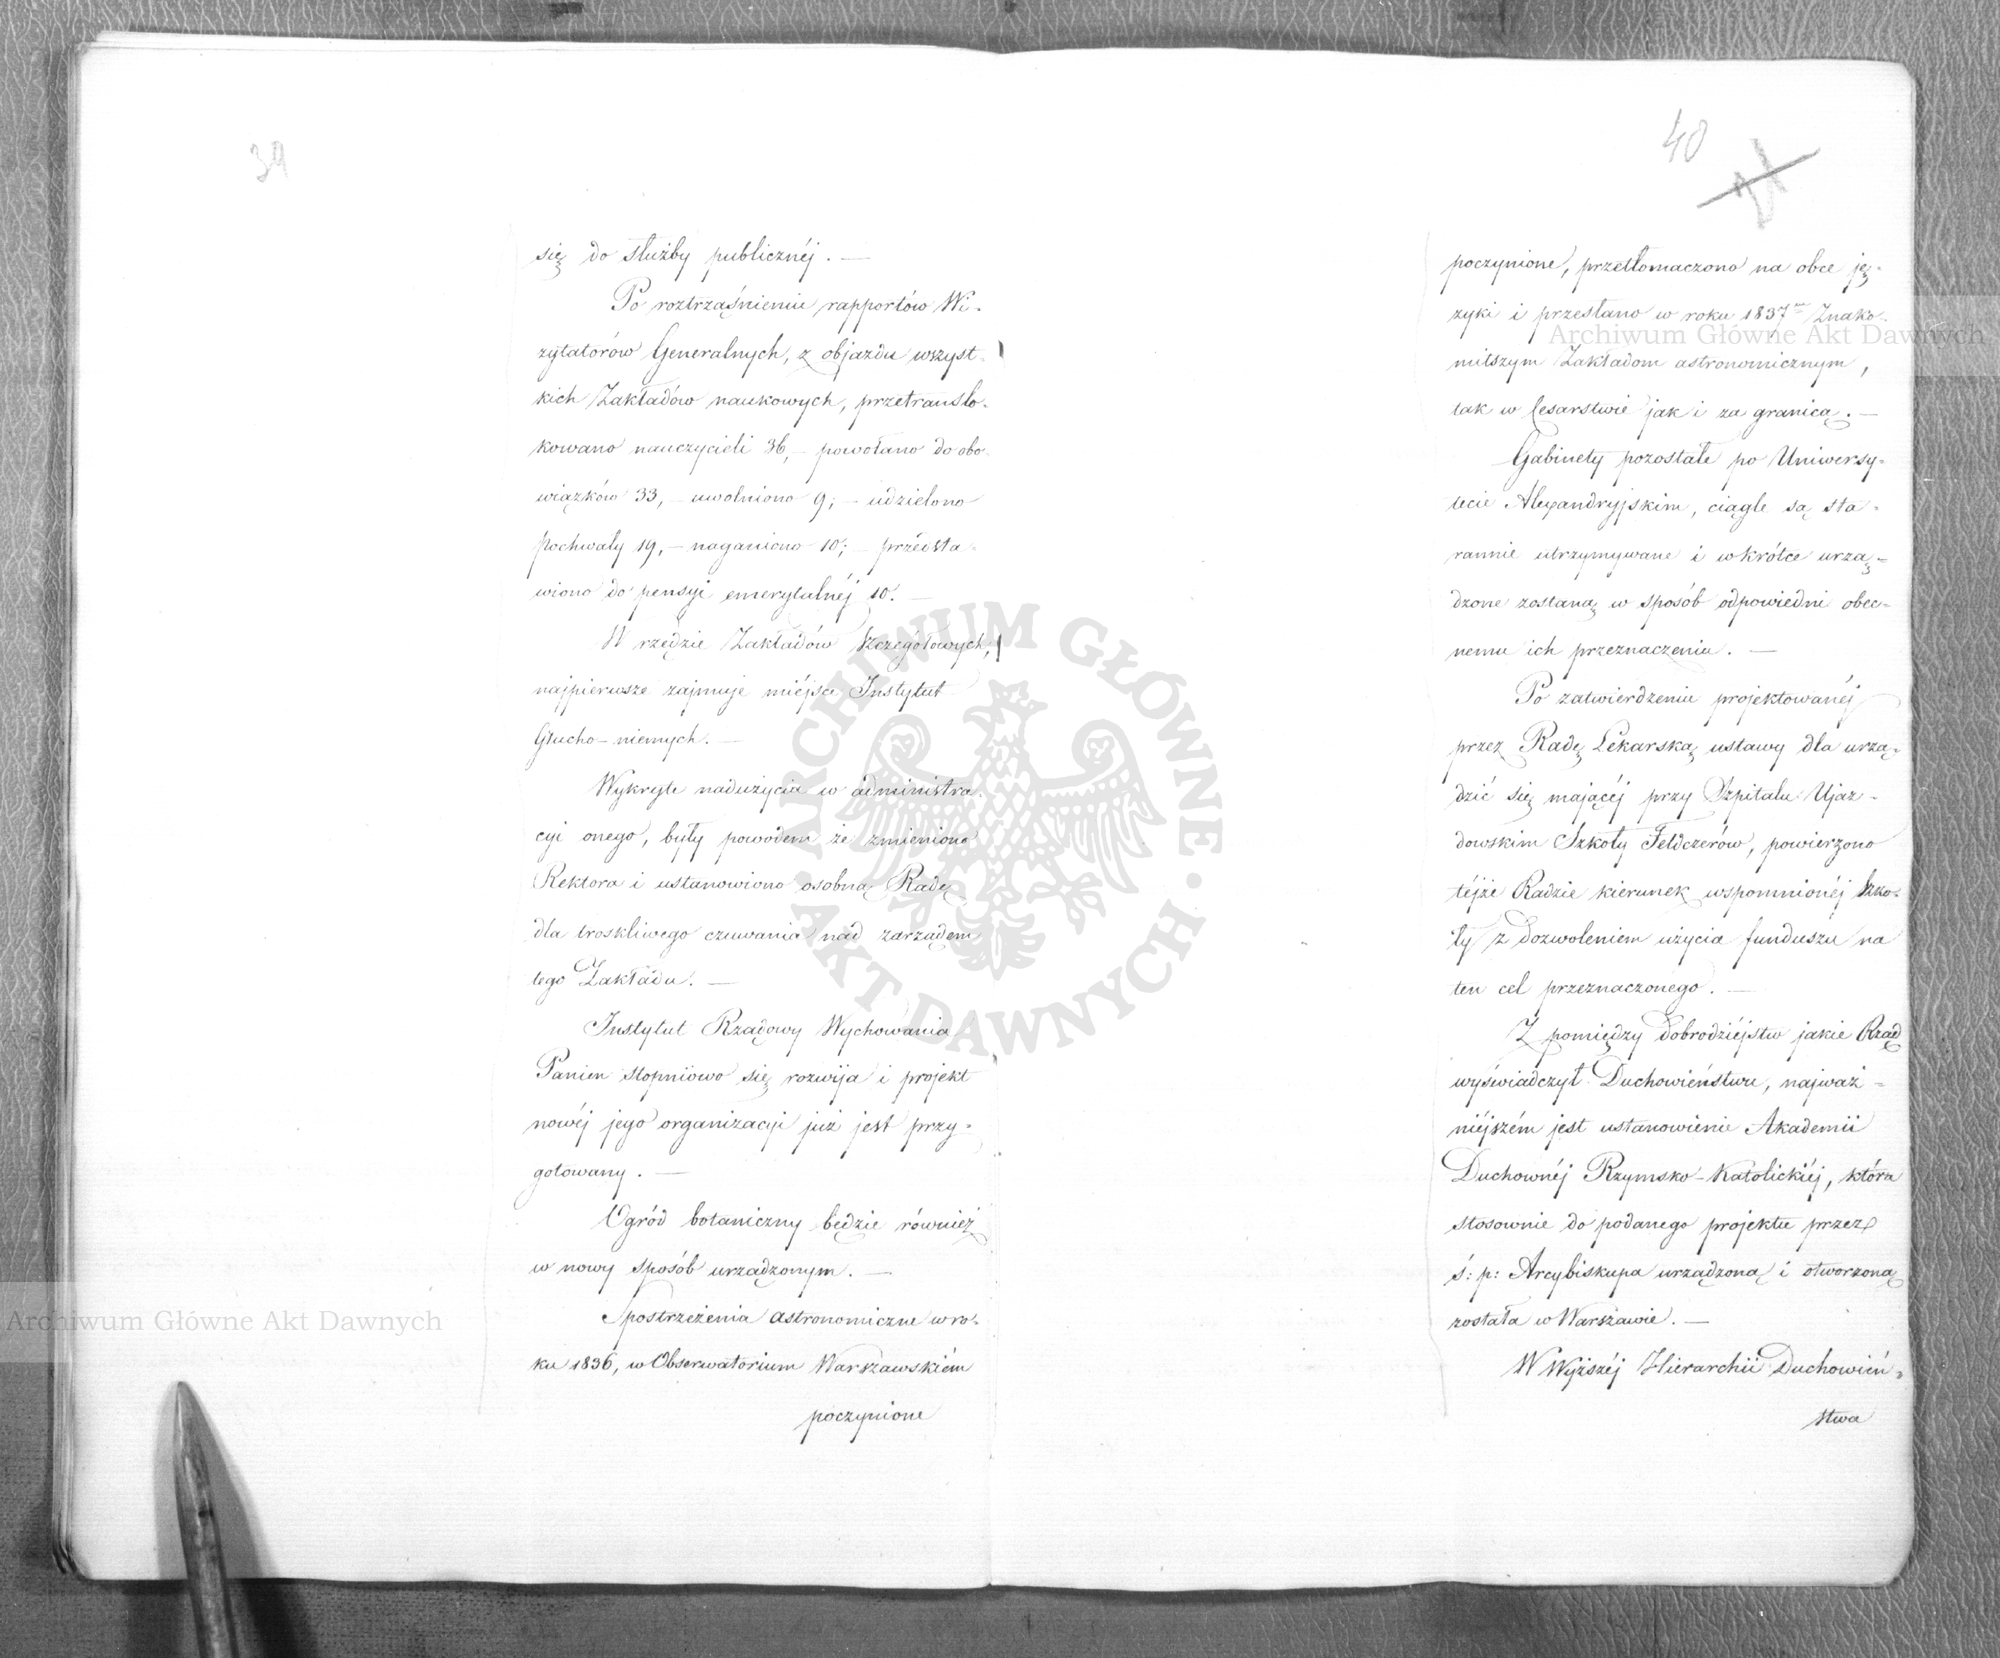 39
się do służby publicznéj. —
Po roztrząśnieniu rapportów Wi-
zytatorów Generalnych, z objazdu wszyst-
kich Zakładów naukowych, przetranslo-
kowano nauczycieli 36, — powołano do obo-
wiązków 33, — uwolniono 9; — udzielono
pochwały 19, — naganiono 10; — przedsta-
wiono do pensyi emerytalnéj 10. —
W rzędzie Zakładów szczegółowych,
najpierwsze zajmuje miéjsce Instytut
Głucho-niemych. —
Wykryte nadużycia w administra-
cyi onego, były powodem że zmieniono
Rektora i ustanowiono osobną Radę
dla troskliwego czuwania nad zarządem
tego Zakładu. —
Instytut Rządowy Wychowania
Panien stopniowo się rozwija i projekt
nowéj jego organizacyi już jest przy-
gotowany. —
Ogród botaniczny będzie również
w nowy sposób urządzonym. —
Spostrzeżenia astronomiczne w ro-
ku 1836, w Obserwatorium Warszawskiém
poczynione
40
21
poczynione, przetłomaczono na obce ję-
zyki i przesłano w roku 1837 Znako-
mitszym Zakładom astronomicznym,
tak w Cesarstwie jak i za granicą. —
Gabinety pozostałe po Uniwersy-
tecie Alexandryjskim, ciągle są sta-
rannie utrzymywane i wkrótce urzą-
dzone zostaną w sposób odpowiedni obec-
nemu ich przeznaczeniu. —
Po zatwierdzeniu projektowanéj
przez Radę Lekarską ustawy dla urzą-
dzić się mającéj przy Szpitalu Ujaz-
dowskim Szkoły Feldczerów, powierzono
téjże Radzie kierunek wspomnionéj Szko-
ły z dozwoleniem użycia funduszu na
ten cel przeznaczonego. —
Z pomiędzy dobrodziéjstw jakie Rząd
wyświadczył Duchowieństwu, najważ-
niéjszém jest ustanowienie Akademii
Duchownéj Rzymsko-Katolickiéj, która
stosownie do podanego projektu przez
ś: p: Arcybiskupa urządzoną i otworzoną
została w Warszawie. —
W Wyższéj Hierarchii Duchowień-
stwa
ARCHIWUM GŁÓWNE AKT DAWNYCH
Archiwum Główne Akt Dawnych
Archiwum Główne Akt Dawnych